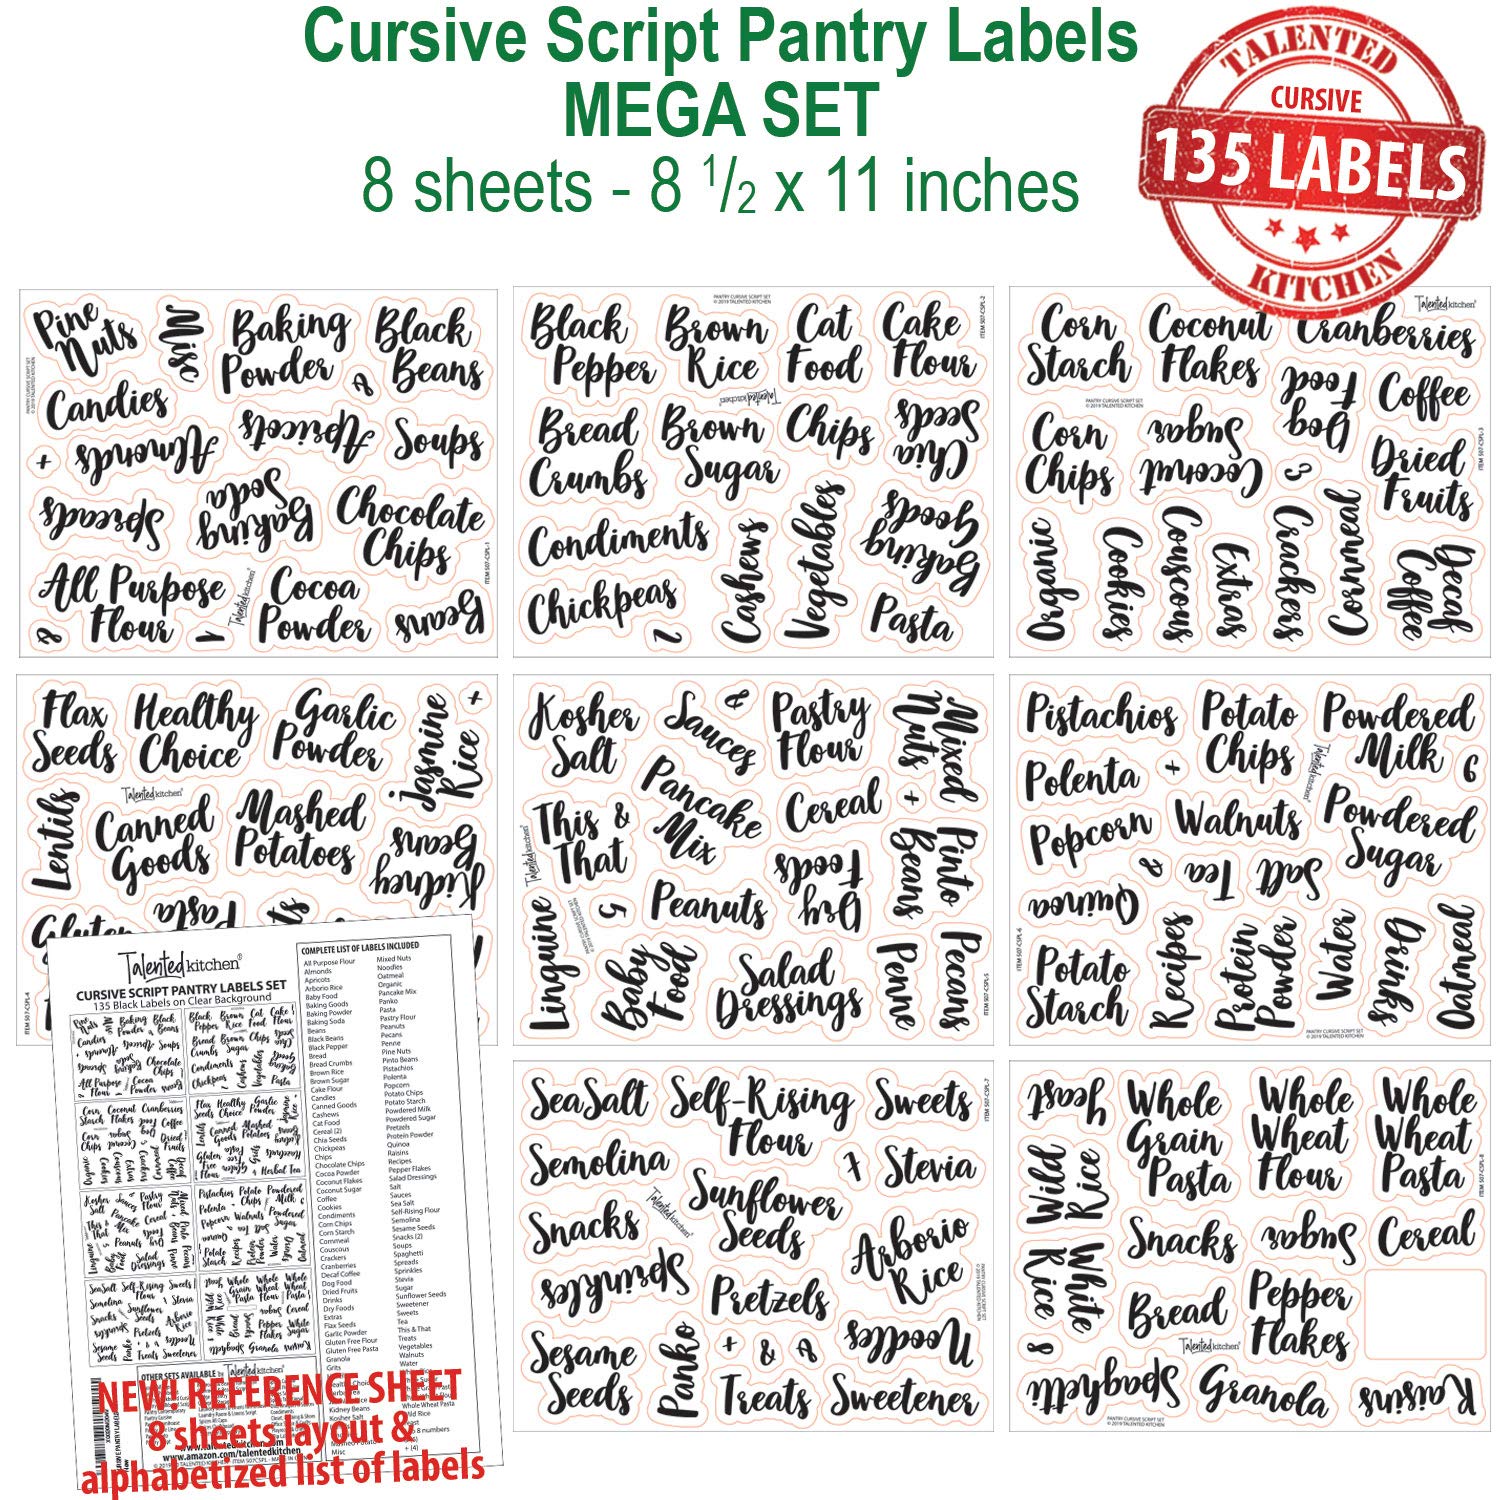 Cursive Script Pantry Labels
MEGA SET
8 sheets - 8 1/2 x 11 inches
TALENTED
CURSIVE
135 LABELS
KITCHEN
Pine
Nuts
Misc
Baking
Powder
Black
Beans
&
Candies
Almonds
Apricots
Soups
+
Spreads
Baking
Soda
Chocolate
Chips
All Purpose
Flour
Cocoa
Powder
Beans
&
1
Talentedkitchen®
PANTRY CURSIVE SCRIPT SET
© 2019 TALENTED KITCHEN
ITEM 507-CSPL-1
PANTRY CURSIVE SCRIPT SET
© 2019 TALENTED KITCHEN
ITEM 507-CSPL-2
Black
Pepper
Brown
Rice
Cat
Food
Cake
Flour
Talentedkitchen®
Bread
Crumbs
Brown
Sugar
Chips
Chia
Seeds
Condiments
Cashews
Vegetables
Baking
Goods
Chickpeas
2
Pasta
Talentedkitchen®
Corn
Starch
Coconut
Flakes
Cranberries
PANTRY CURSIVE SCRIPT SET
© 2019 TALENTED KITCHEN
Dog
Food
Coffee
Corn
Chips
Coconut
Sugar
3
Dried
Fruits
ITEM 507-CSPL-3
Organic
Cookies
Couscous
Extras
Crackers
Cornmeal
Decaf
Coffee
Flax
Seeds
Healthy
Choice
Garlic
Powder
Jasmine
Rice
+
Lentils
Talentedkitchen®
Canned
Goods
Mashed
Potatoes
Kidney
Beans
Gluten
Pasta
ITEM 507-CSPL-4
Kosher
Salt
Sauces
&
Pastry
Flour
Mixed
Nuts
This &
That
Pancake
Mix
Cereal
+
Pinto
Beans
Talentedkitchen®
Linguine
5
Peanuts
Dry
Foods
Baby
Food
Salad
Dressings
Penne
Pecans
ITEM 507-CSPL-5
Pistachios
Potato
Chips
Powdered
Milk
6
Polenta
+
Talentedkitchen®
Popcorn
Walnuts
Powdered
Sugar
&
Tea
Salt
Quinoa
Potato
Starch
Recipes
Protein
Powder
Water
Drinks
Oatmeal
ITEM 507-CSPL-6
PANTRY CURSIVE SCRIPT SET
© 2019 TALENTED KITCHEN
Sea Salt
Self-Rising
Flour
Sweets
ITEM 507-CSPL-7
Semolina
7
Stevia
Snacks
Talentedkitchen®
Sunflower
Seeds
Arborio
Rice
Sprinkles
Pretzels
PANTRY CURSIVE SCRIPT SET
© 2019 TALENTED KITCHEN
Sesame
Seeds
Panko
+ & &
Noodles
Treats
Sweetener
Yeast
Whole
Grain
Pasta
Whole
Wheat
Flour
Whole
Wheat
Pasta
ITEM 507-CSPL-8
Wild
Rice
Snacks
Sugar
Cereal
White
Rice
Bread
Pepper
Flakes
8
Talentedkitchen®
Spaghetti
Granola
Raisins
PANTRY CURSIVE SCRIPT SET
© 2019 TALENTED KITCHEN
Talentedkitchen®
CURSIVE SCRIPT PANTRY LABELS SET
135 Black Labels on Clear Background
COMPLETE LIST OF LABELS INCLUDED
All Purpose Flour
Almonds
Apricots
Arborio Rice
Baby Food
Baking Goods
Baking Powder
Baking Soda
Beans
Black Beans
Black Pepper
Bread
Bread Crumbs
Brown Rice
Brown Sugar
Cake Flour
Candies
Canned Goods
Cashews
Cat Food
Cereal (2)
Chia Seeds
Chickpeas
Chips
Chocolate Chips
Cocoa Powder
Coconut Flakes
Coconut Sugar
Coffee
Cookies
Condiments
Corn Chips
Corn Starch
Cornmeal
Couscous
Crackers
Cranberries
Decaf Coffee
Dog Food
Dried Fruits
Drinks
Dry Foods
Extras
Flax Seeds
Garlic Powder
Gluten Free Flour
Gluten Free Pasta
Granola
Grits
Kidney Beans
Kosher Salt
Misc
Mixed Nuts
Noodles
Oatmeal
Organic
Pancake Mix
Panko
Pasta
Pastry Flour
Peanuts
Pecans
Penne
Pine Nuts
Pinto Beans
Pistachios
Polenta
Popcorn
Potato Chips
Potato Starch
Powdered Milk
Powdered Sugar
Pretzels
Protein Powder
Quinoa
Raisins
Recipes
Pepper Flakes
Salad Dressings
Salt
Sauces
Sea Salt
Self-Rising Flour
Semolina
Sesame Seeds
Snacks (2)
Soups
Spaghetti
Spreads
Sprinkles
Stevia
Sugar
Sunflower Seeds
Sweetener
Sweets
Tea
This & That
Treats
Vegetables
Walnuts
Water
Whole Wheat Pasta
Wild Rice
+ (4)
OTHER SETS AVAILABLE by Talentedkitchen®
www.amazon.com/talentedkitchen
NEW! REFERENCE SHEET
8 sheets layout &
alphabetized list of labels